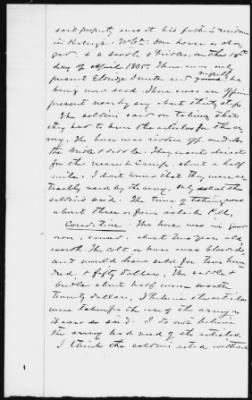 said property was at his father's residence
in Raleigh N.C. One horse a
and a saddle & bridle, on the 15th
day of April 1865. There were only
present Eloridge Smith and myself he
being now dead There was no officer
present nearby any about thirty steps
The soldiers said on taking that
they had to have the articles for the ar
my. The horse was ridden off under
the bridle & saddle. They went direct
for the nearest Camp about a half
mile. I don't know that they were ac
tually used by the army, only what the
soldiers said. The time of taking was
about three or four o'clock P.M.
Condition. The horse was in good
about two years old
worth The colt or horse was blooded,
and would have sold for two hun
dred & fifty dollars, The saddle &
bridle about half worn worth
twenty dollars, I believe the articles
were taken for the use of the army as
it was so said. I do not believe
the army had need of the articles
I think the soldiers acted without